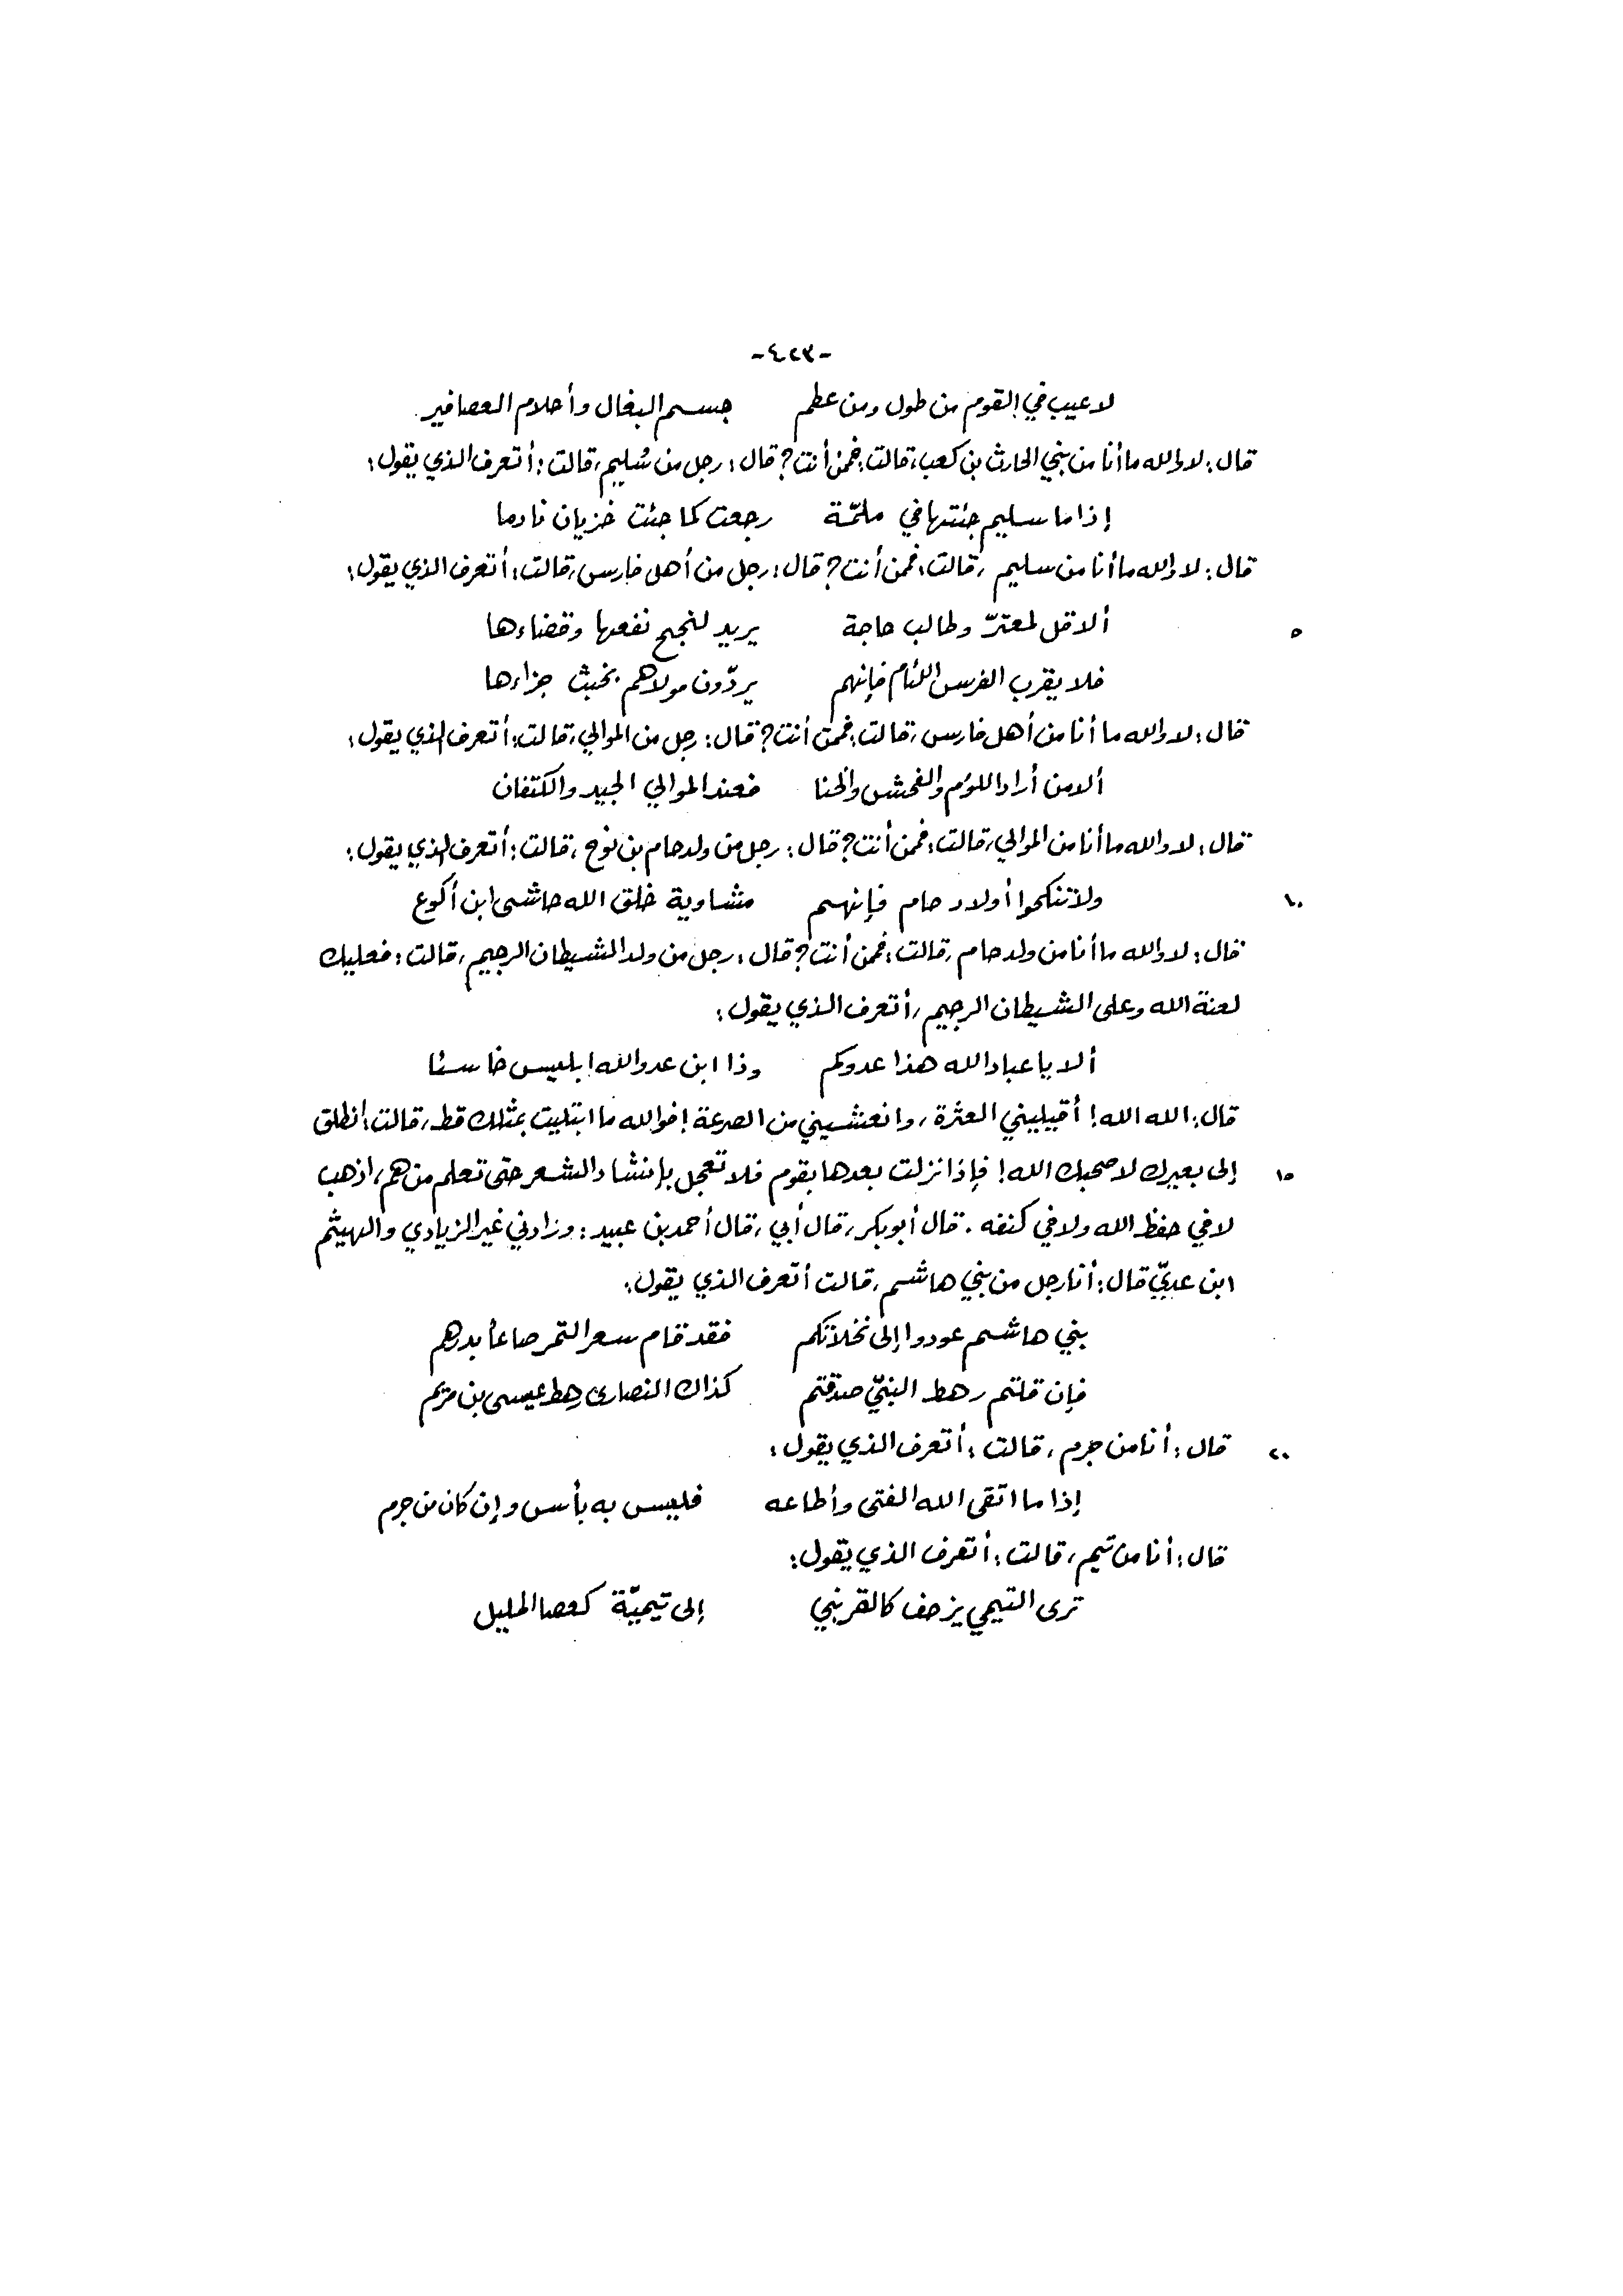 -٤٢٣-
لا عيب في القوم من طول ومن عظم جسم البغال وأحلام العصافير.
قال: لا والله ما أنا من بني الحارث بن كعب، قالت: فمن أنت؟ قال: رجل من سُليم، قالت: أتعرف الذي يقول:
إذا ما سليم جئتها في ملمّة رجعت كما جئت خزيان نادما
قال: لا والله ما أنا من سليم، قالت: فمن أنت؟ قال: رجل من أهل فارس، قالت: أتعرف الذي يقول:
٥ ألا قل لمعترّ وطالب حاجة يريد لنجح نفعها وقضاءها
فلا يقرب الفرس اللئام فإنهم يردّون مولاهم بخبث جزاءها
قال: لا والله ما أنا من أهل فارس، قالت: فمن أنت؟ قال: رجل من الموالي، قالت: أتعرف الذي يقول:
ألا من أراد اللؤم والفحش والخنا فعند الموالي الجيد والكتفان
قال: لا والله ما أنا من الموالي، قالت: فمن أنت؟ قال: رجل من ولد حام بن نوح، قالت: أتعرف الذي يقول:
١٠ ولا تنكحوا أولاد حام فإنهم مشاوية خلق الله حاشى ابن أكوع
قال: لا والله ما أنا من ولد حام، قالت: فمن أنت؟ قال: رجل من ولد الشيطان الرجيم، قالت: فعليك
لعنة الله وعلى الشيطان الرجيم، أتعرف الذي يقول:
ألا يا عباد الله هذا عدوكم وذا ابن عدو الله إبليس خاسئا
قال: الله الله! أقيليني العثرة، وانعشيني من الصرعة! فوالله ما ابتليت بمثلك قط، قالت: انطلق
١٥ إلى بعيرك لا صحبك الله! فإذا نزلت بعدها بقوم فلا تعجل بإنشاد الشعر حتى تعلم من هم، اذهب
لا في حفظ الله ولا في كنفه. قال أبو بكر، قال أبي، قال أحمد بن عبيد: وزادني غير الزيادي والهيثم
ابن عديّ قال: أنا رجل من بني هاشم، قالت أتعرف الذي يقول:
بني هاشم عودوا إلى نخلاتكم فقد قام سعر التمر صاعاً بدرهم
فإن قلتم رهط النبيّ صدقتم كذاك النصارى رهط عيسى بن مريم
٢٠ قال: أنا من جرم، قالت: أتعرف الذي يقول:
إذا ما اتقى الله الفتى وأطاعه فليس به بأس وإن كان من جرم
قال: أنا من تيم، قالت: أتعرف الذي يقول:
ترى التيمي يزحف كالقرنبي إلى تيميّة كعصا المليل